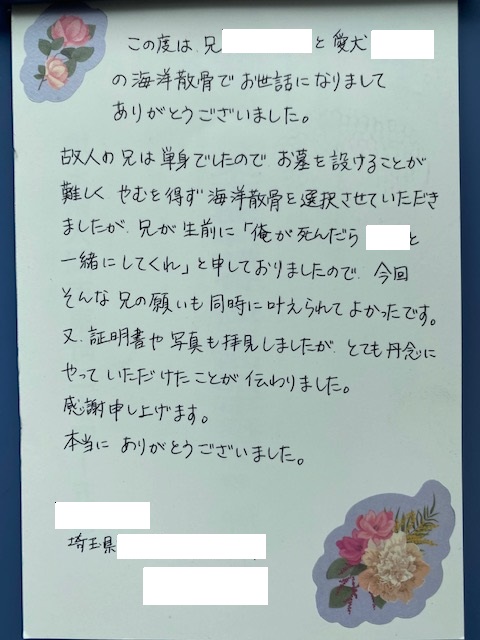 この度は、兄 と 愛犬
の海洋散骨でお世話になりまして
ありがとうございました。
故人の兄は単身でしたので お墓を設けることが
難しく やむを得ず海洋散骨を選択させていただき
ましたが、兄が生前に「俺が死んだら と
一緒にしてくれ」と申しておりましたので、今回
そんな兄の願いも同時に叶えられてよかったです。
又、証明書や写真も拝見しましたが、とても丹念に
やっていただけたことが伝わりました。
感謝申し上げます。
本当に ありがとうございました。
埼玉県